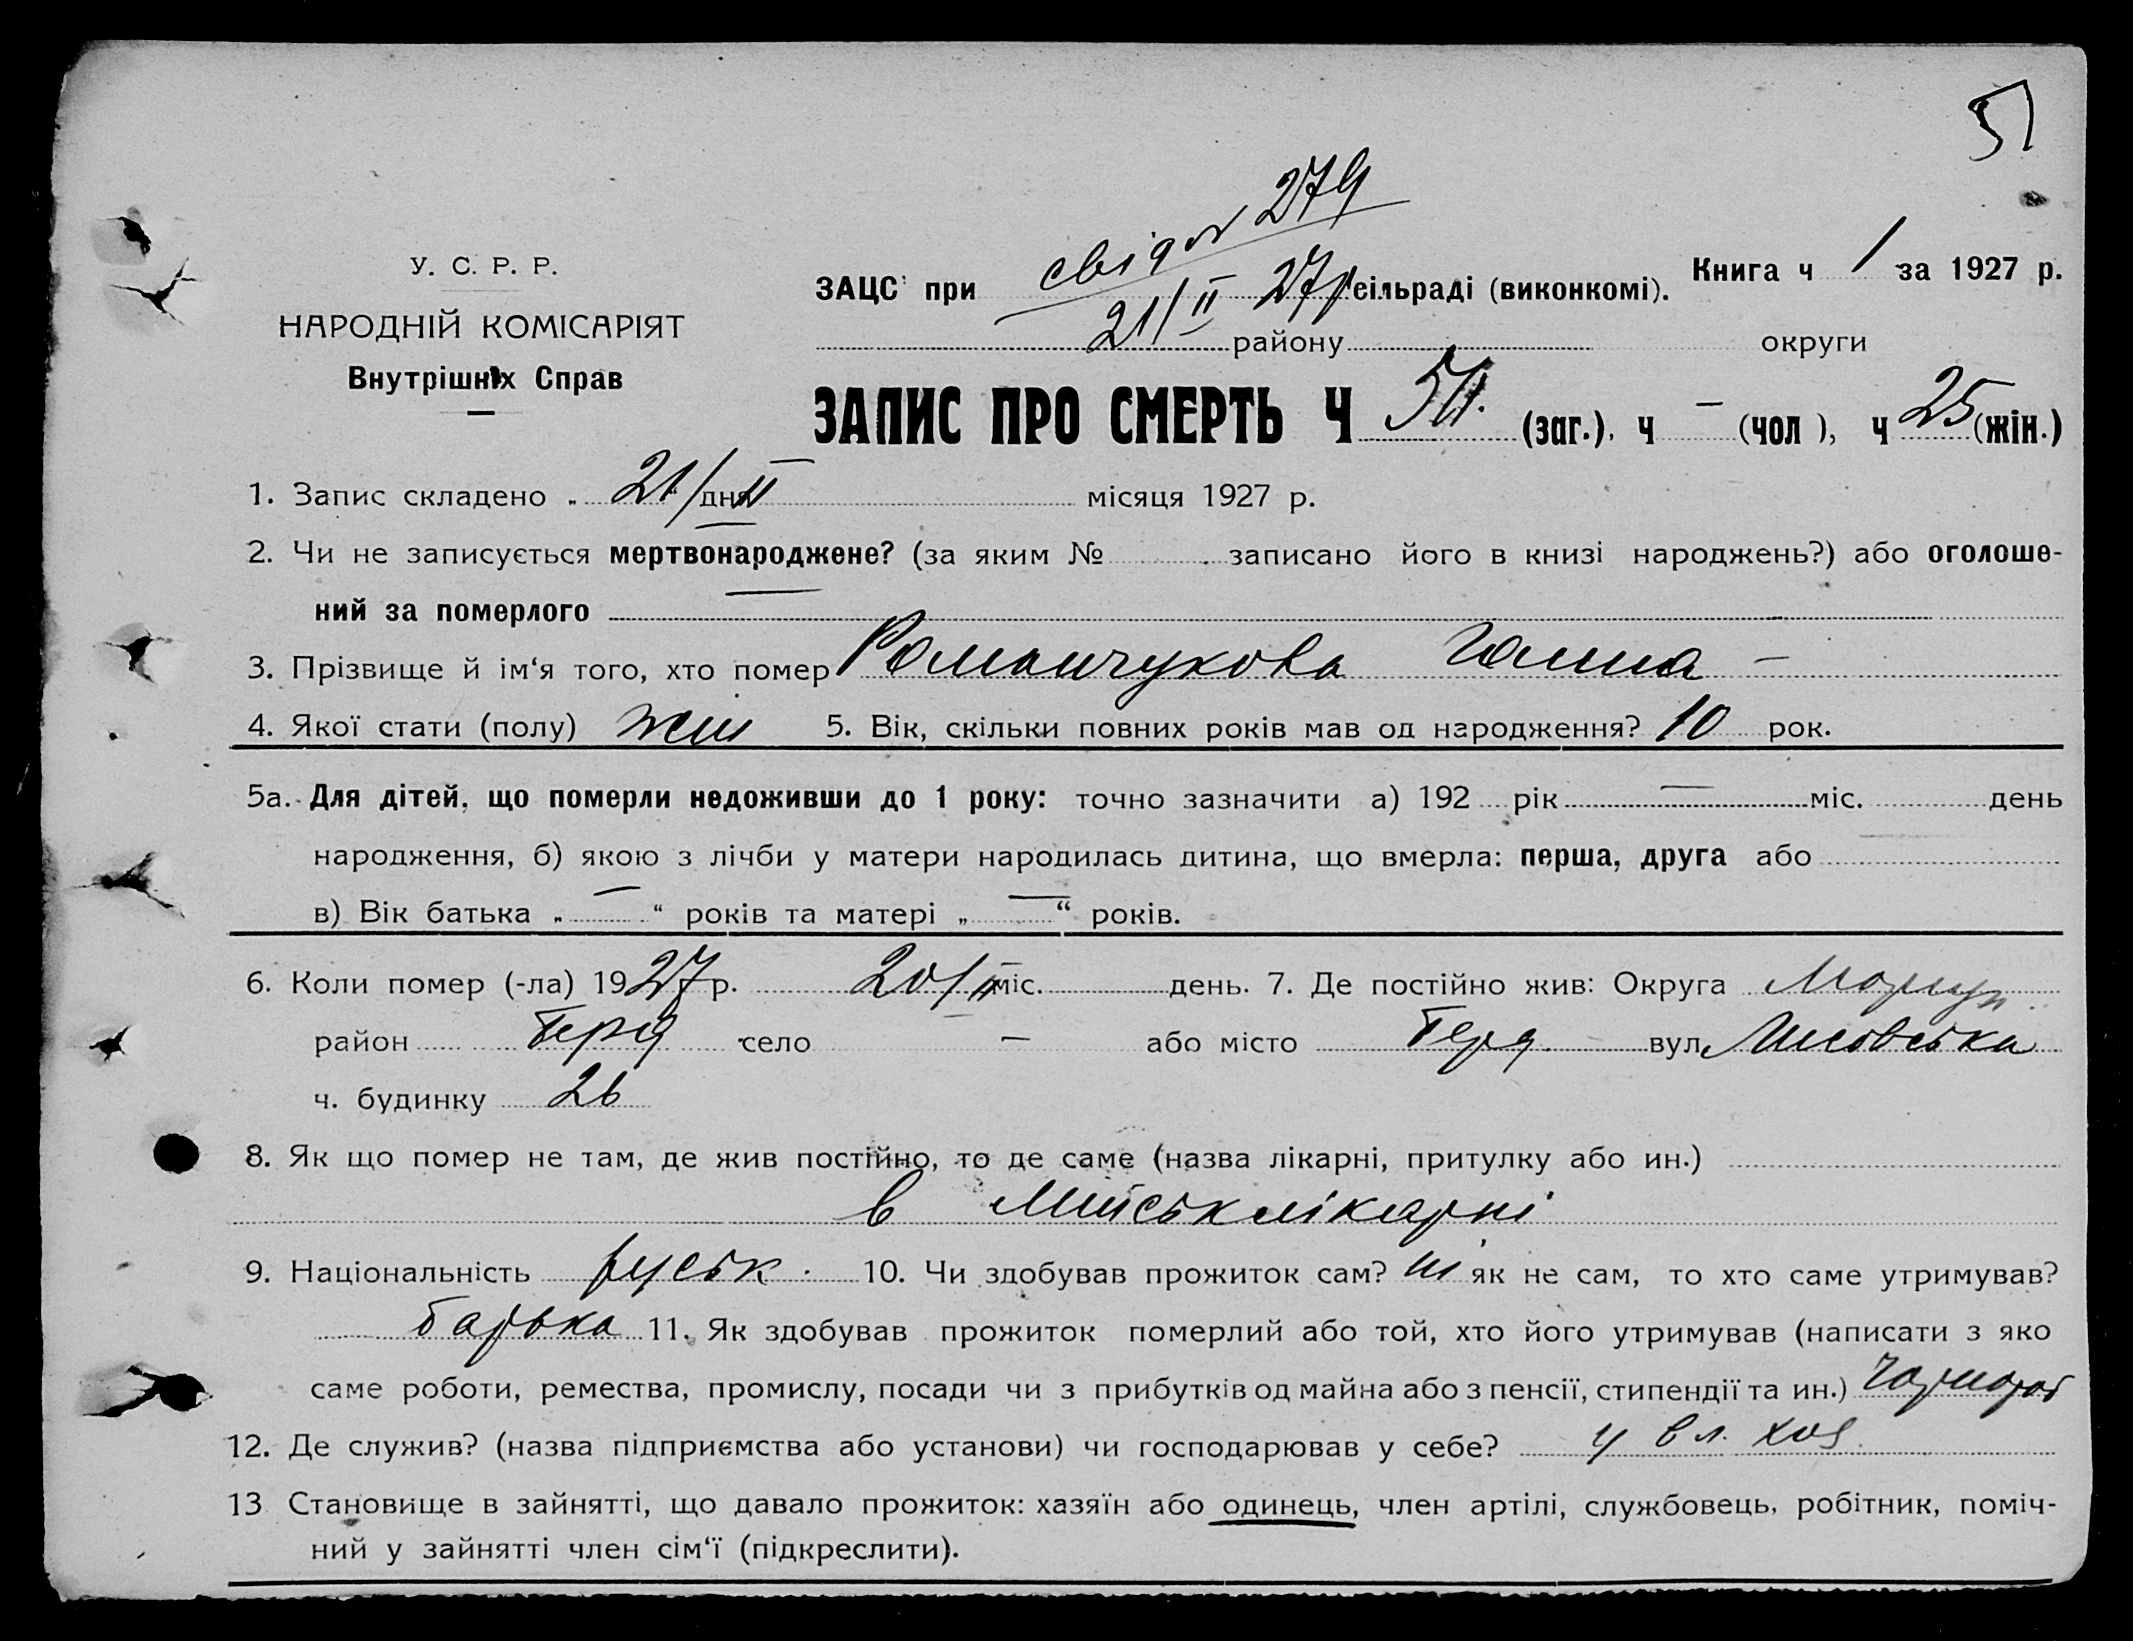 51
свідот 279
У. С. Р. Р.
НАРОДНІЙ КОМІСАРІЯТ
Внутрішніх Справ
ЗАЦС при сільраді (виконкомі). Книга ч 1 за 1927 р.
21/II 27р
району округи
ЗАПИС ПРО СМЕРТЬ Ч 51. (заг.), ч — (чол), ч 25 (жін.)
1. Запис складено „ 21/II дня місяця 1927 р.
2. Чи не записується мертвонароджене? (за яким № записано його в книзі народжень?) або оголоше-
ний за померлого —
3. Прізвище й ім‘я того, хто помер Романчукова Галина —
4. Якої стати (полу) жін 5. Вік, скільки повних років мав од народження? 10 рок.
5а. Для дітей, що померли недоживши до 1 року: точно зазначити а) 192 рік — міс. день
народження, б) якою з лічби у матери народилась дитина, що вмерла: перша, друга або
в) Вік батька „ — “ років та матері „ — “ років.
6. Коли помер (-ла) 1927 р. 20/II міс. день. 7. Де постійно жив: Округа Маріуп
район Берд село — або місто Берд вул. Лисовська
ч. будинку 26
8. Як що помер не там, де жив постійно, то де саме (назва лікарні, притулку або ин.)
в Міськлікарні
9. Національність руськ. 10. Чи здобував прожиток сам? ні як не сам, то хто саме утримував?
батько 11. Як здобував прожиток померлий або той, хто його утримував (написати з яко
саме роботи, ремества, промислу, посади чи з прибутків од майна або з пенсії, стипендії та ин.) Чорнороб
12. Де служив? (назва підприємства або установи) чи господарював у себе? у вл. хоз
13 Становище в зайнятті, що давало прожиток: хазяїн або одинець, член артілі, службовець, робітник, поміч-
ний у зайнятті член сім‘ї (підкреслити).